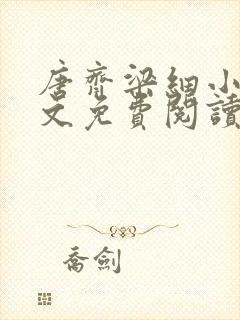 唐齊梁細小
文免費閱讀
喬劍